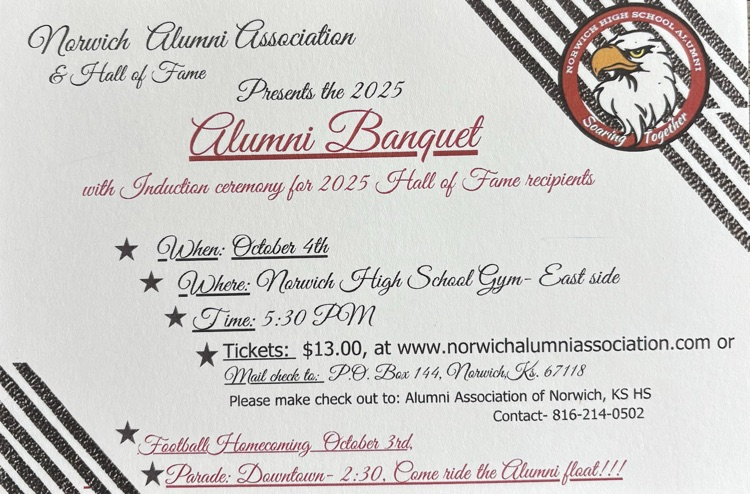 Norwich Alumni Association
& Hall of Fame
Presents the 2025
NORWICH HIGH SCHOOL ALUMNI
Soaring Together
Alumni Banquet
with Induction ceremony for 2025 Hall of Fame recipients
When: October 4th
Where: Norwich High School Gym- East side
Time: 5:30 PM
Tickets: $13.00, at www.norwichalumniassociation.com or
Mail check to: P.O. Box 144, Norwich, Ks. 67118
Please make check out to: Alumni Association of Norwich, KS HS
Contact- 816-214-0502
Football Homecoming October 3rd,
Parade: Downtown- 2:30, Come ride the Alumni float!!!